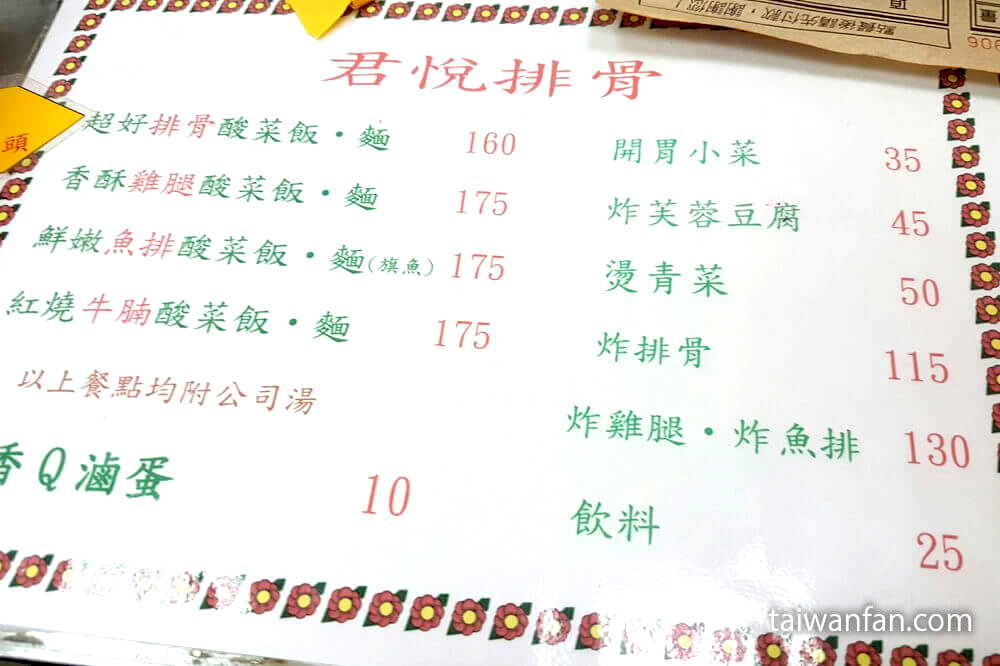 點餐後請先付款，謝謝您！
項
量
906
頭
君悅排骨
超好排骨酸菜飯・麵 160
香酥雞腿酸菜飯・麵 175
鮮嫩魚排酸菜飯・麵(旗魚) 175
紅燒牛腩酸菜飯・麵 175
以上餐點均附公司湯
香Q滷蛋 10
開胃小菜 35
炸芙蓉豆腐 45
燙青菜 50
炸排骨 115
炸雞腿・炸魚排 130
飲料 25
taiwanfan.com